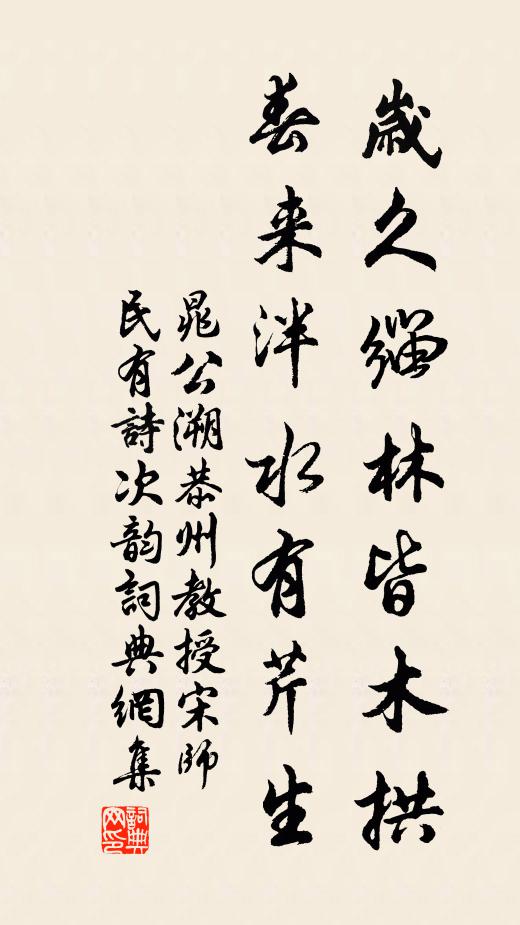 歲久緇林皆木拱
春来泮水有芹生
晁公溯恭州教授宋師
民有詩次韵詞典網集
詞典网印